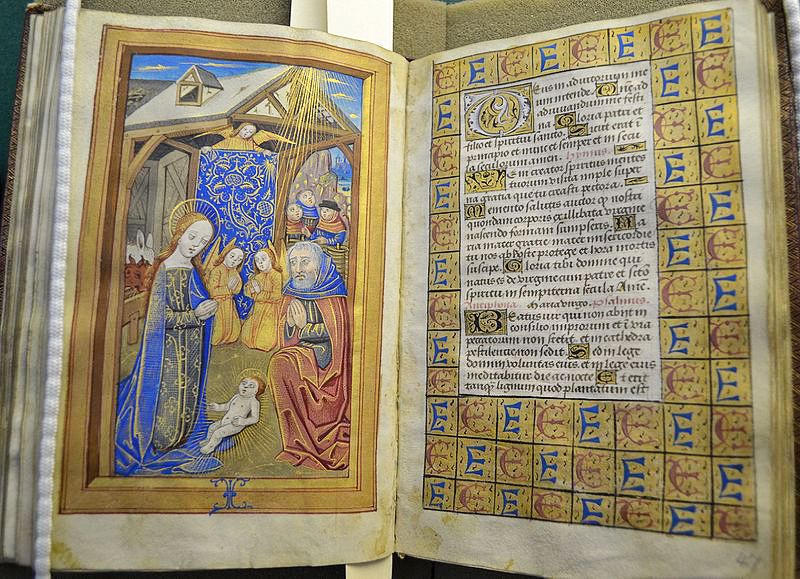 Deus in adiutorium me
um intende. Dne ad
adiuvandum me festi
na Gloria patri et
filio et spiritui sancto. Sicut erat ī
principio et nunc et semper et in secu
la seculorum amen. Hymnus.
Veni creator spiritus mentes
tuorum visita imple super
na gratia que tu creasti pectora.
Memento salutis auctor q nostri
quondam corporis ex illibata virgine
nascendo formam sumpseris. Ma
ria mater gratie mater misericordie
tu nos ab hoste protege et hora mortis
suscipe. Gloria tibi domine qui
natus es de virgine cum patre et scto
spiritu in sempiterna secula Ame.
Antiphona. Maria virgo. psalmus.
Beatus vir qui non abiit in
consilio impiorum et ī via
peccatorum non stetit et in cathedra
pestilentie non sedit. Sed in lege
domini voluntas eius et in lege eius
meditabitur die ac nocte Et erit
tanq̄ lignum quod plantatum est
47